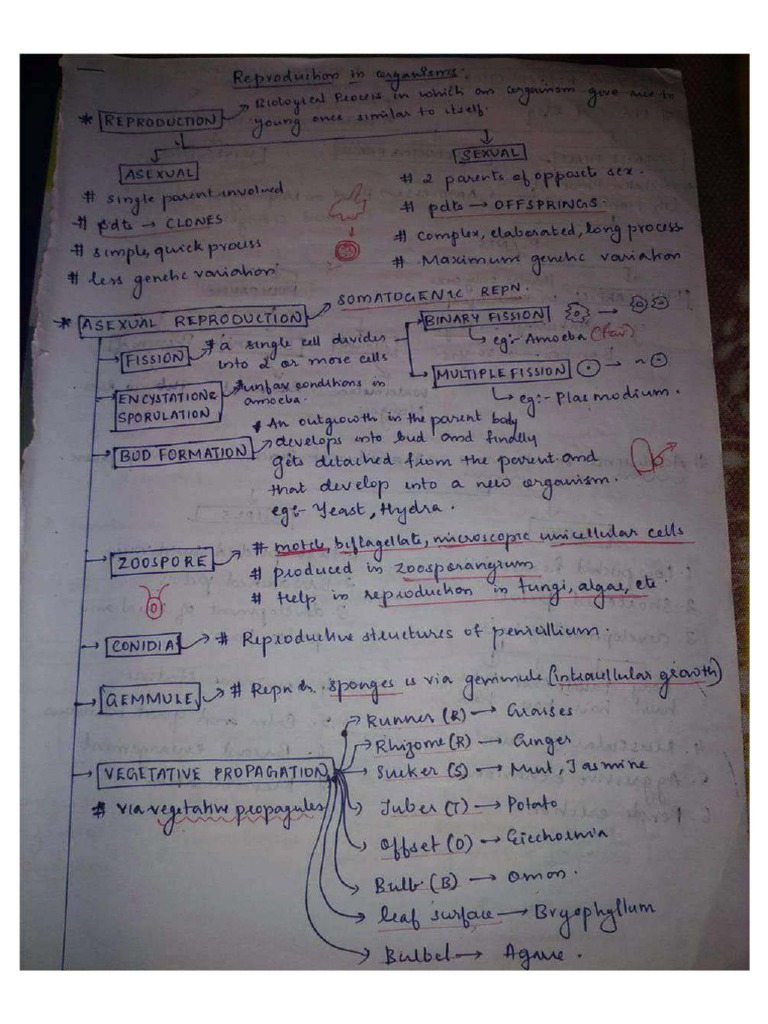 Reproduction in organisms.
* REPRODUCTION → Biological Process in which an organism give rise to
young ones similar to itself.
ASEXUAL
# single parent involved
# pdts → CLONES
# simple, quick process
# less genetic variation
SEXUAL
# 2 parents of opposite sex.
# pdts → OFFSPRINGS.
# complex, elaborated, long process
# Maximum genetic variation
* ASEXUAL REPRODUCTION → SOMATOGENIC REPN.
FISSION → * a single cell divides
into 2 or more cells
BINARY FISSION
→ eg:- Amoeba (fav)
MULTIPLE FISSION → n
→ eg:- Plasmodium.
ENCYSTATION &
SPORULATION → * unfav conditions in
amoeba.
BUD FORMATION → * An outgrowth in the parent body
develops into bud and finally
gets detached from the parent and
that develop into a new organism.
eg:- Yeast, Hydra.
ZOOSPORE → # motile, biflagellate, microscopic unicellular cells
# produced in zoosporangium
# Help in reproduction in fungi, algae, etc
CONIDIA → # Reproductive structures of penicillium.
GEMMULE → # Repn in sponges is via gemmule (intracellular growth)
VEGETATIVE PROPAGATION
# via vegetative propagules
Runner (R) → Grasses
Rhizome (R) → Ginger
Sucker (S) → Mint, Jasmine
Tuber (T) → Potato
Offset (O) → Eicchornia
Bulb (B) → Onion.
leaf surface → Bryophyllum
Bulbel → Agave.